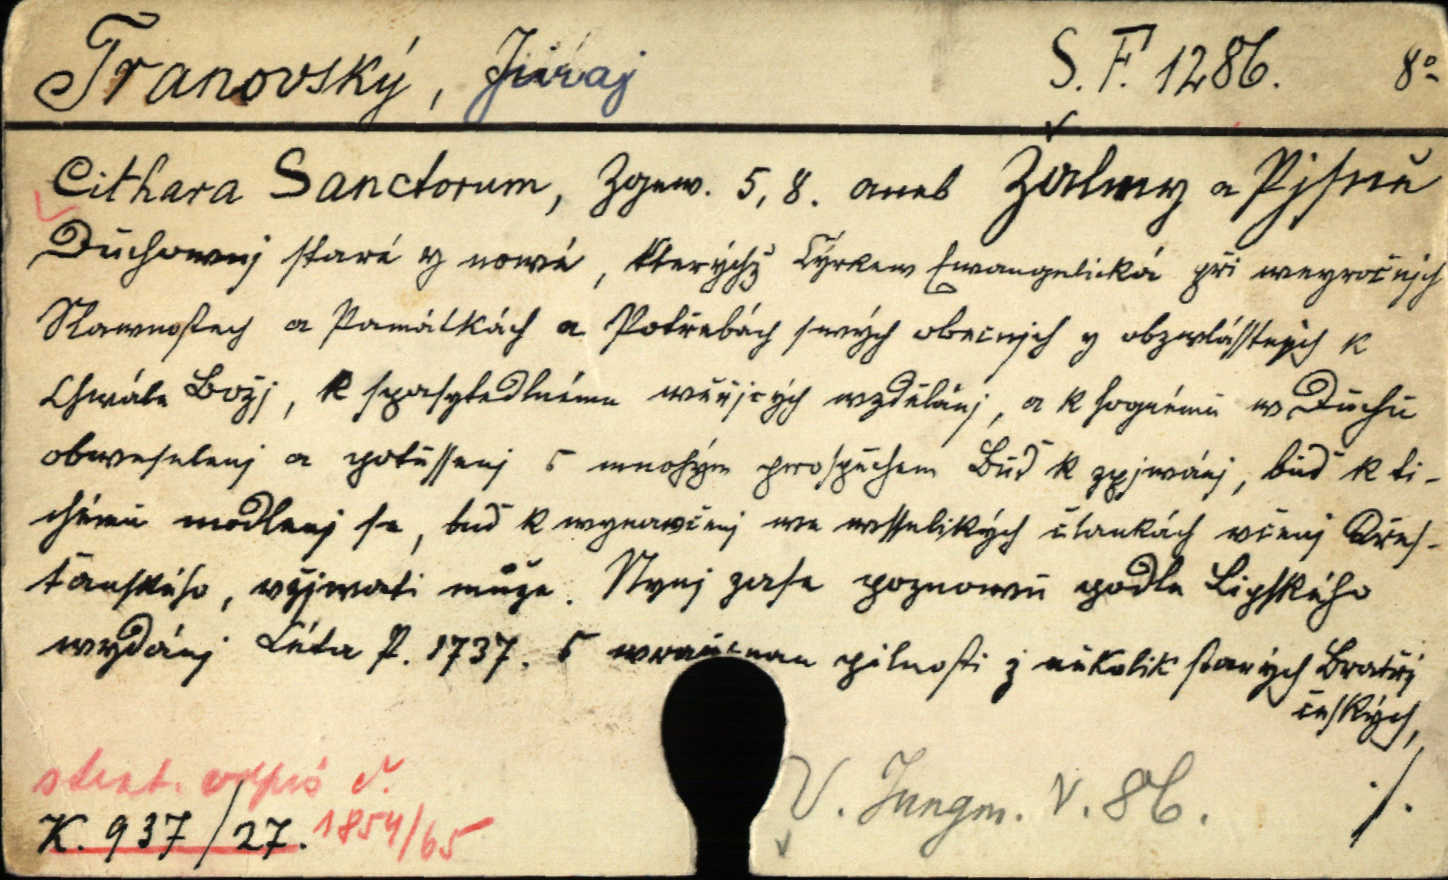 Tranovský, Juraj S.F. 1286. 8º
Cithara Sanctorum, Zgew. 5, 8. aneb Žalmy a Pjsně
Duchownj staré y nowé, kterýchž Cýrkew Ewangelická při weyročnjch
Slawnostech a Památkách a Potřebách swých obecnjch y obzwlásstnjch k
Chwále Božj, k spasytedlnému wěřjcých wzdělánj, a k hognému w Duchu
obweselenj a potěssenj s mnohým prospěchem Buď k zpjwánj, buď k ti-
chému modlenj se, buď k wynaučenj we wsselikých článkách včenj Křes-
ťanského, vžjwati může. Nynj zase poznowu podle Lipského
wydánj Léta P. 1737. s pilnosti z několik starých Bratřj
českých,
./.
V. Jungm. V. 86.
K. 937/27. 1854/65